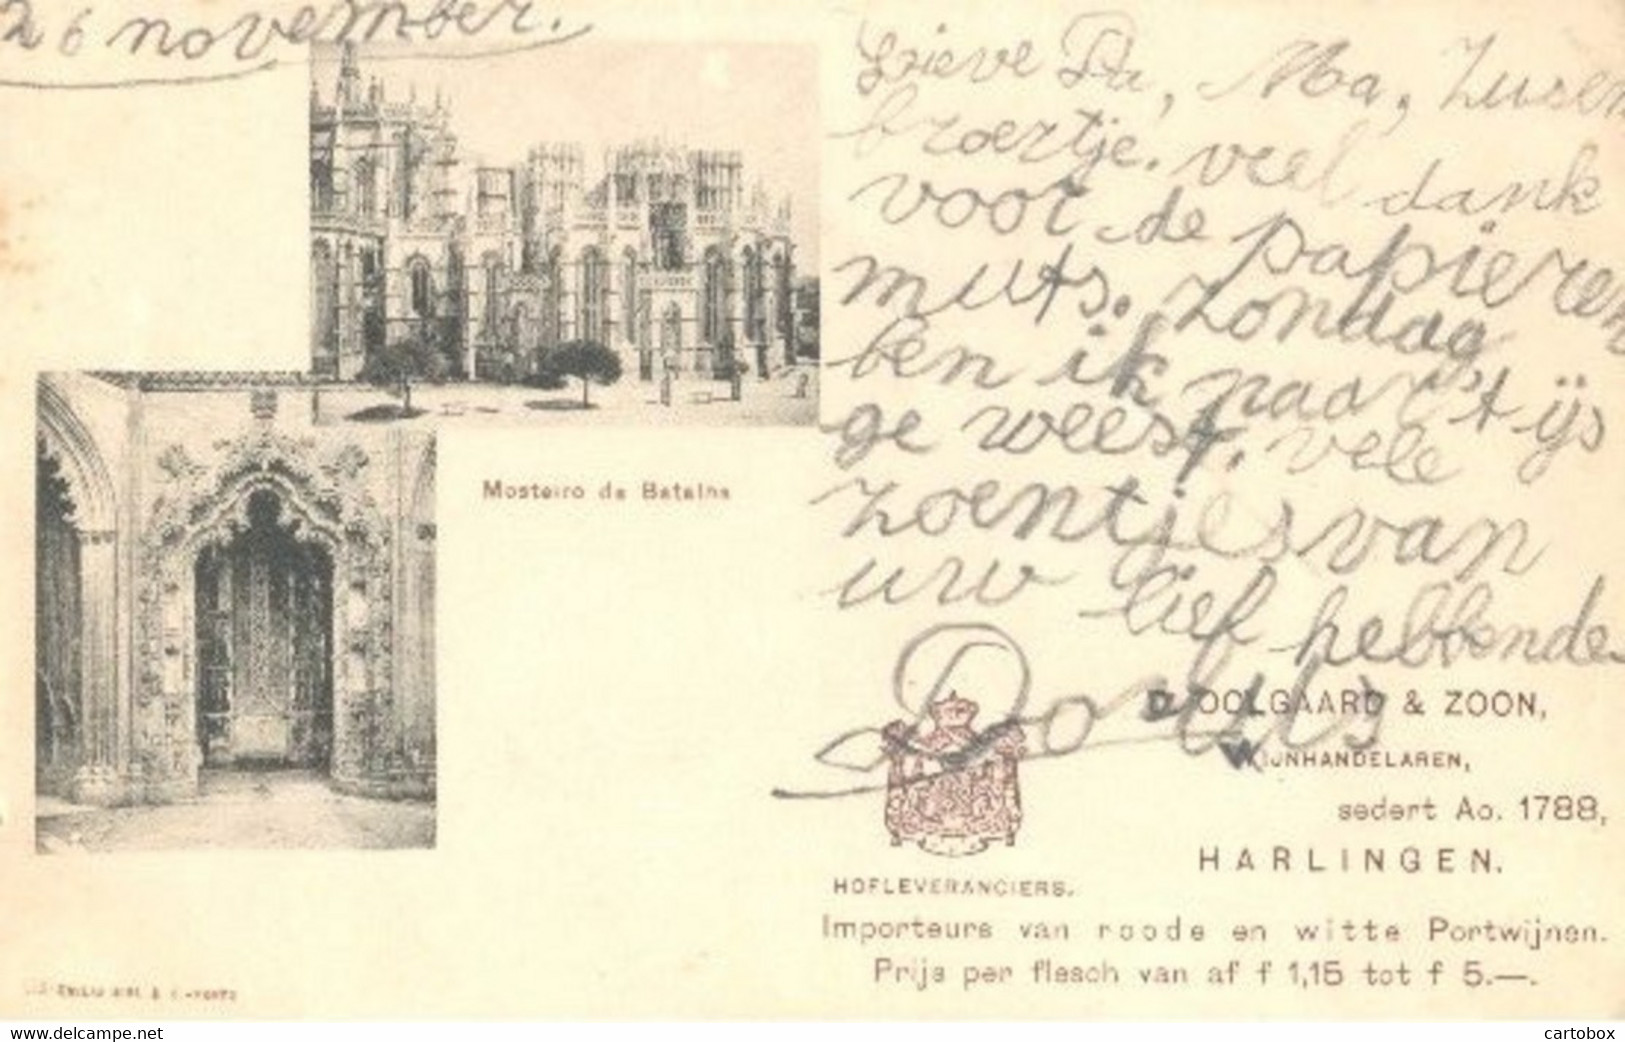 26 november.
Lieve Pa, Ma, Zusen
broertje. veel dank
voor de papieren
muts. Zondag
ben ik naar 't ijs
ge weest, vele
zoentjes van
uw lief hebbende
Dorus
Mosteiro da Batalha
OOLGAARD & ZOON,
WIJNHANDELAREN,
sedert Ao. 1788,
HARLINGEN.
HOFLEVERANCIERS.
Importeurs van roode en witte Portwijnen.
Prijs per flesch van af f 1,15 tot f 5.—.
delcampe.net
cartobox